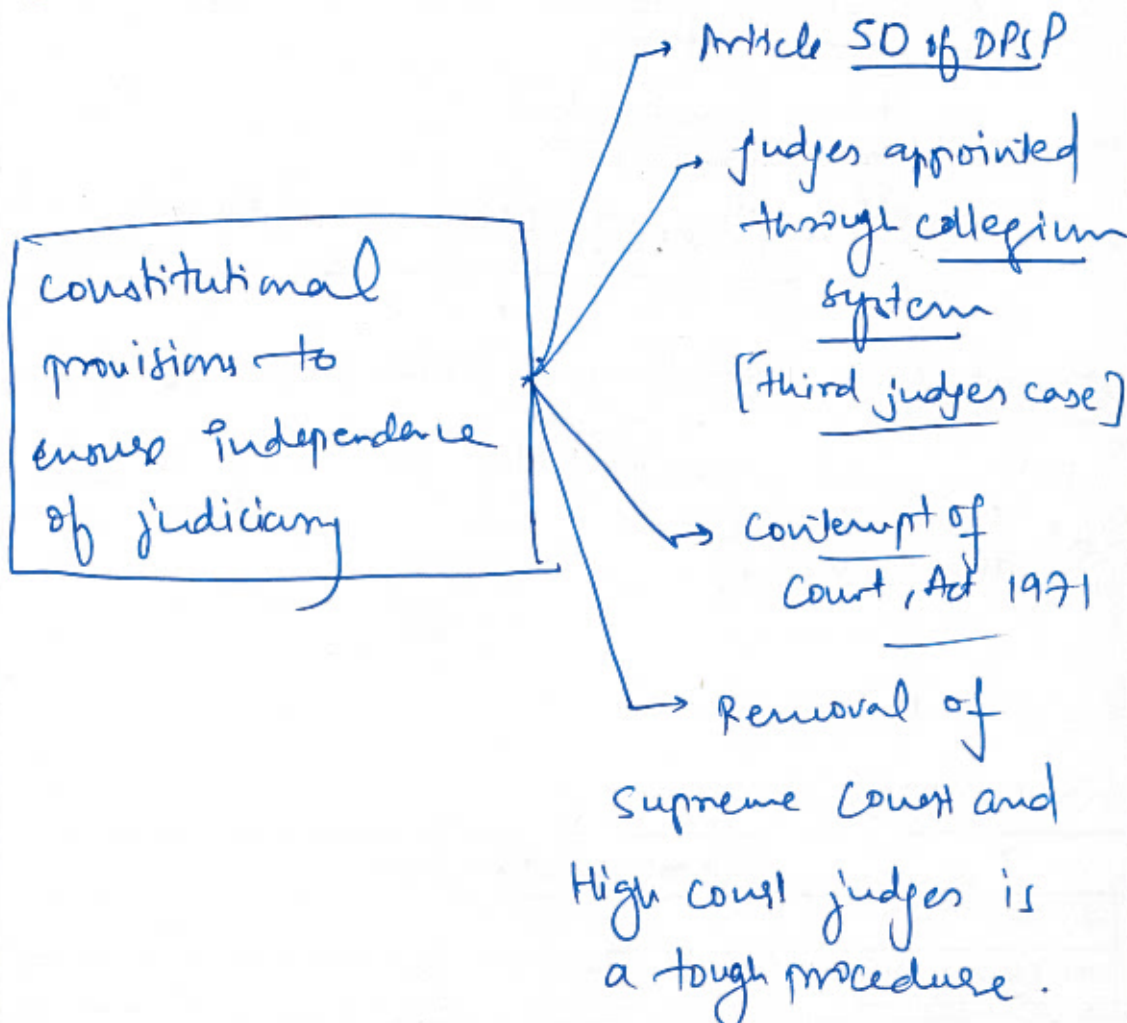 constitutional
provisions to
ensure independence
of judiciary
Article 50 of DPSP
judges appointed
through collegium
system
[third judges case]
Contempt of
Court, Act 1971
Removal of
supreme court and
High court judges is
a tough procedure.